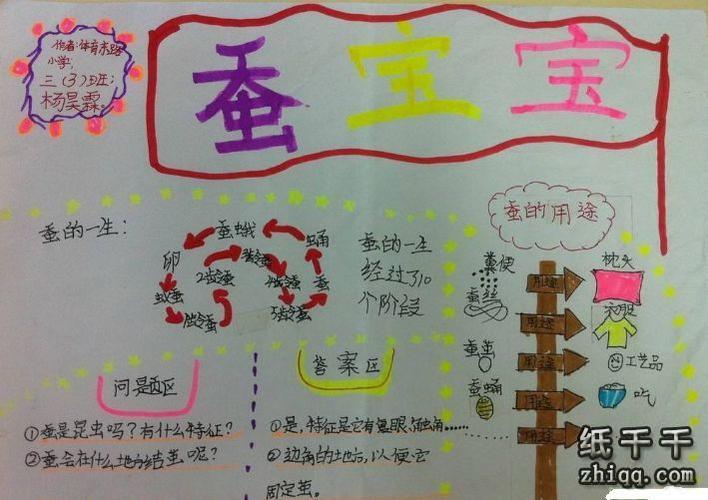 作者:体育东路
小学;
三(3)班;
杨昊霖。
蚕宝宝
蚕的一生:
蚕蛾
蛹
卵
蚁蚕
1龄蚕
2龄蚕
3龄蚕
4龄蚕
5龄蚕
蚕的一生
经过了10
个阶段
蚕的用途
粪便
用途
枕头
蚕丝
用途
衣服
蚕茧
用途
工艺品
蚕蛹
用途
吃
用途
问是题区
①蚕是昆虫吗?有什么特征?
②蚕会在什么地方结茧呢?
答案区
①是,特征是它有复眼、触角……
②边角的地方,以便它
固定茧。
纸千千
zhiqq.com